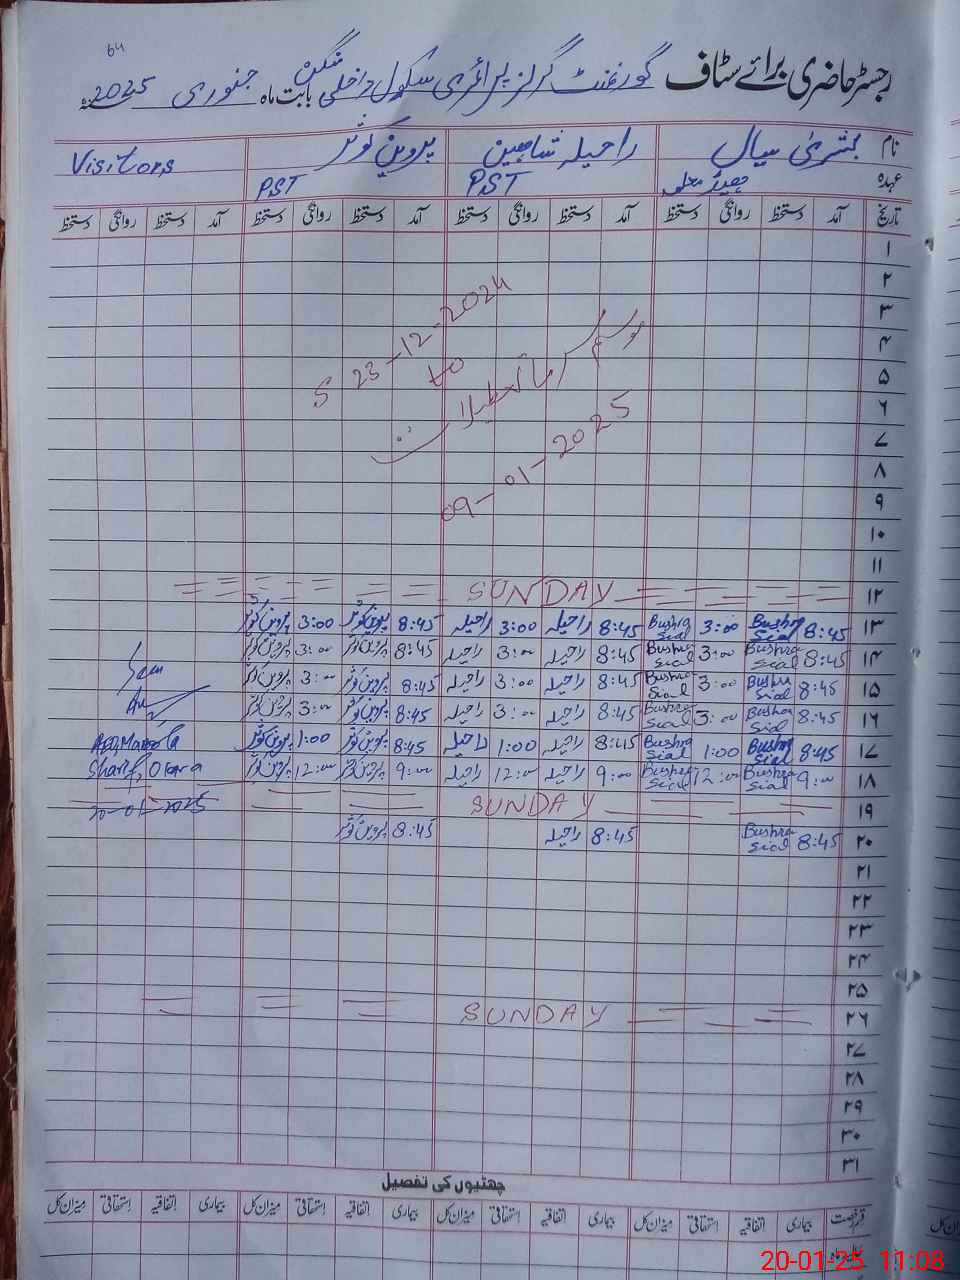 64
رجسٹر حاضری برائے سٹاف گورنمنٹ گرلز پرائمری سکول داخلی بابت ماہ جنوری 2025
نام بشریٰ سیال راحیلہ شاہین پروین کوثر Visitors
عہدہ ہیڈ معلمہ PST PST
تاریخ آمد دستخط روانگی دستخط آمد دستخط روانگی دستخط آمد دستخط روانگی دستخط آمد دستخط روانگی دستخط
۱
۲
۳
۴
۵
۶
۷
۸
۹
۱۰
۱۱
موسم سرما تعطیلات
23-12-2024
to
09-01-2025
۱۲ SUNDAY
۱۳ 8:45 Bushra Sial 3:00 Bushra Sial 8:45 راحیلہ 3:00 راحیلہ 8:45 پروین کوثر 3:00 پروین کوثر
۱۴ 8:45 Bushra Sial 3:00 Bushra Sial 8:45 راحیلہ 3:00 راحیلہ 8:45 پروین کوثر 3:00 پروین کوثر
۱۵ 8:45 Bushra Sial 3:00 Bushra Sial 8:45 راحیلہ 3:00 راحیلہ 8:45 پروین کوثر 3:00 پروین کوثر
۱۶ 8:45 Bushra Sial 3:00 Bushra Sial 8:45 راحیلہ 3:00 راحیلہ 8:45 پروین کوثر 3:00 پروین کوثر
۱۷ 8:45 Bushra Sial 1:00 Bushra Sial 8:45 راحیلہ 1:00 راحیلہ 8:45 پروین کوثر 1:00 پروین کوثر
۱۸ 9:00 Bushra Sial 12:00 Bushra Sial 9:00 راحیلہ 12:00 راحیلہ 9:00 پروین کوثر 12:00 پروین کوثر Sharif, Okara
۱۹ SUNDAY 20-01-2025
۲۰ 8:45 Bushra Sial 8:45 راحیلہ 8:45 پروین کوثر
۲۱
۲۲
۲۳
۲۴
۲۵
۲۶ SUNDAY
۲۷
۲۸
۲۹
۳۰
۳۱
چھٹیوں کی تفصیل
قسم رخصت بیماری اتفاقیہ استحقاقی میزان کل بیماری اتفاقیہ استحقاقی میزان کل بیماری اتفاقیہ استحقاقی میزان کل بیماری اتفاقیہ استحقاقی میزان کل
20-01-25 11:08